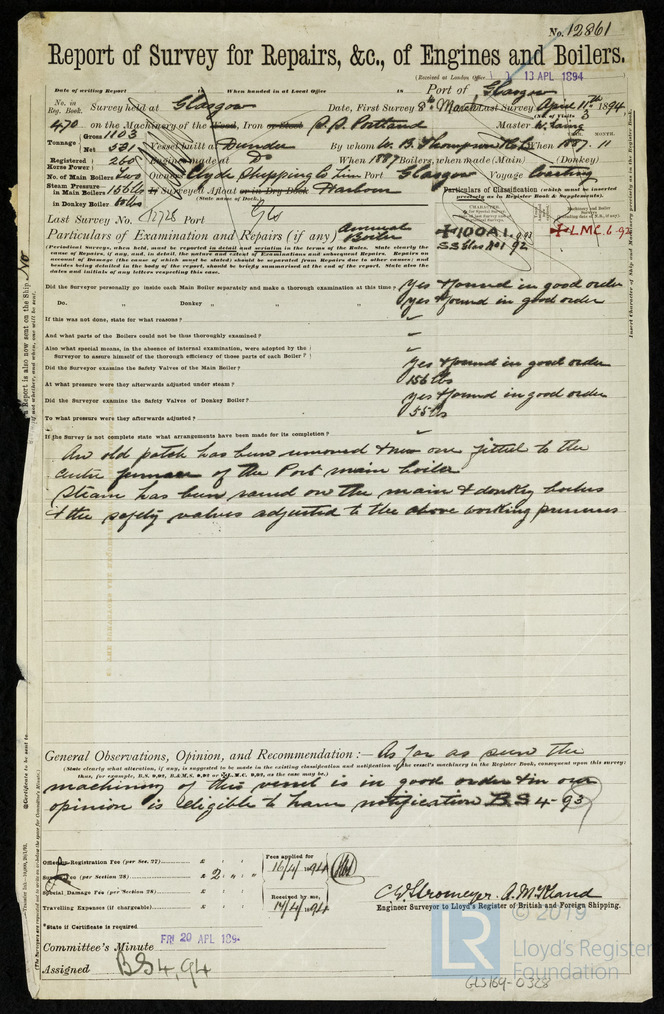 No. 12861
Report of Survey for Repairs, &c., of Engines and Boilers.
(Received at London Office 13 APL 1894
Date of writing Report When handed in at Local Office 18 Port of Glasgow
No. in Reg. Book. Survey held at Glasgow Date, First Survey 8th March Last Survey April 11th 1894
(No. of Visits 3
470 on the Machinery of the Wood, Iron or Steel S.S. Portland Master W. Laing
Tonnage Gross 1103 Net 531 Vessel built at Dundee By whom W. B. Thompson When 1887. 11
Registered Horse Power 260 Engines made at Do When 1887 Boilers, when made (Main) (Donkey)
No. of Main Boilers Two Owners Clyde Shipping Co Lim Port Glasgow Voyage Coasting
Steam Pressure in Main Boilers 156 lbs If Surveyed Afloat or in Dry Dock Harbour
(State name of Dock.)
in Donkey Boiler
Particulars of Classification (which must be inserted precisely as in Register Book & Supplements).
Last Survey No. 12728 Port Gls
Particulars of Examination and Repairs (if any) Annual Boiler
100A1
SS Glw No1 92
L.M.C. 6.92
(Periodical Surveys, when held, must be reported in detail and seriatim in the terms of the Rules. State clearly the cause of Repairs, if any, and, in detail, the nature and extent of Examinations and subsequent Repairs. Repairs on account of Damage (the cause of which must be stated) should be separated from Repairs due to other causes; and besides being detailed in the body of the report, should be briefly summarised at the end of the report. State also the dates and initials of any letters respecting this case.)
Did the Surveyor personally go inside each Main Boiler separately and make a thorough examination at this time? Yes & found in good order
Do. " Donkey " " " Yes & found in good order
If this was not done, state for what reasons?
And what parts of the Boilers could not be thus thoroughly examined?
Also what special means, in the absence of internal examination, were adopted by the Surveyor to assure himself of the thorough efficiency of those parts of each Boiler?
Did the Surveyor examine the Safety Valves of the Main Boiler? Yes & found in good order
At what pressure were they afterwards adjusted under steam? 156 lbs
Did the Surveyor examine the Safety Valves of Donkey Boiler? Yes & found in good order
To what pressure were they afterwards adjusted? 55 lbs
If the Survey is not complete state what arrangements have been made for its completion?
An old patch has been removed & new one fitted to the
centre furnace of the Port main boiler
Steam has been raised on the main & donkey boilers
& the safety valves adjusted to the above working pressures
General Observations, Opinion, and Recommendation:— As far as seen the
(State clearly what alteration, if any, is suggested to be made in the existing classification and notification of the vessel's machinery in the Register Book, consequent upon this survey; thus, for example, B.S. 9,92, B.&M.S. 9,92 or L.M.C. 9,92, as the case may be.)
machinery of this vessel is in good order & in our
opinion is eligible to have notification B.S 4-93
Office or Registration Fee (per Sec. 27) £
Survey Fee (per Section 28) £ 2 " "
Special Damage Fee (per Section 28) £
Travelling Expenses (if chargeable) £
Fees applied for 16/4/1894
Received by me, 17/4/1894
C. E. Stromeyer. A. McKeand
Engineer Surveyor to Lloyd's Register of British and Foreign Shipping.
*State if Certificate is required
Committee's Minute FRI 20 APL 189
Assigned BS 4,94
© 2019
LR
Lloyd's Register
Foundation
GLS169-0328